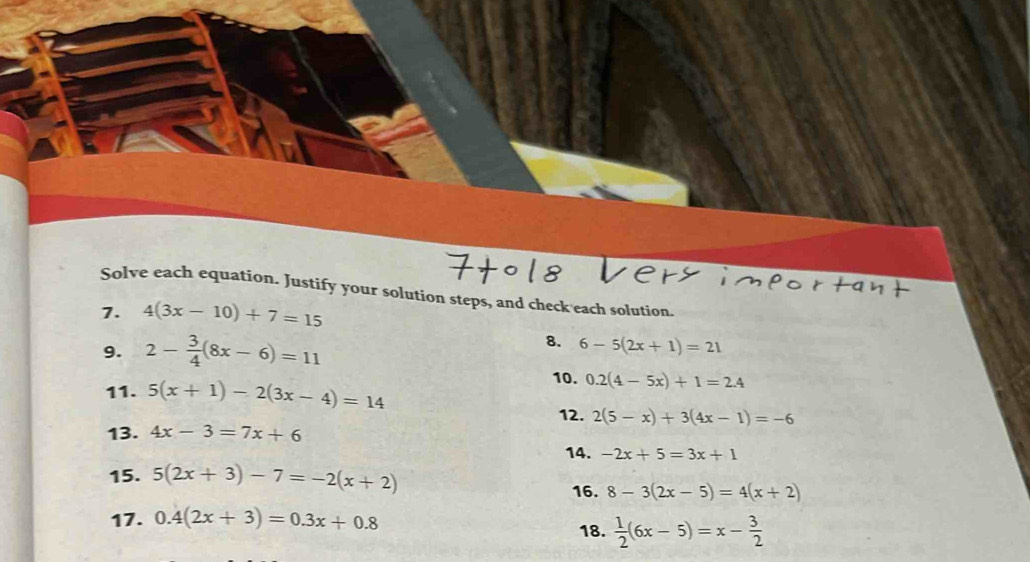 7 to 18 very important
Solve each equation. Justify your solution steps, and check each solution.
7. 4(3x − 10) + 7 = 15
8. 6 − 5(2x + 1) = 21
9. 2 − 3/4(8x − 6) = 11
10. 0.2(4 − 5x) + 1 = 2.4
11. 5(x + 1) − 2(3x − 4) = 14
12. 2(5 − x) + 3(4x − 1) = −6
13. 4x − 3 = 7x + 6
14. −2x + 5 = 3x + 1
15. 5(2x + 3) − 7 = −2(x + 2)
16. 8 − 3(2x − 5) = 4(x + 2)
17. 0.4(2x + 3) = 0.3x + 0.8
18. 1/2(6x − 5) = x − 3/2